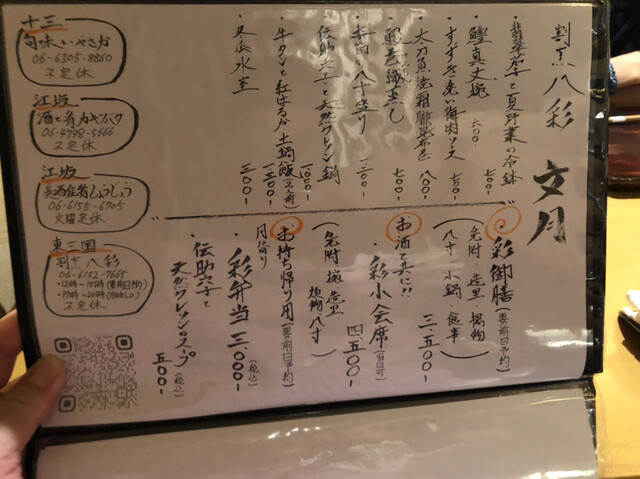 割烹 八彩 文月
翡翠茄子と夏野菜の冷鉢 七〇〇-
鱧真丈椀 六〇〇-
すずき洗い梅肉ソース 七〇〇-
太刀魚焼霜 八〇〇-
蒸し 七〇〇-
八寸盛り
伝助穴子と天然クレソン鍋 一〇〇〇-
牛タンと紅はるか土鍋飯(2合) 一三〇〇-
冬瓜氷室 三〇〇-
彩御膳(要前日予約)
先附 造里 揚物
八寸 小鍋 食事
三.五〇〇-
お酒と共に!!
彩小会席(当日可)
四.五〇〇-
先附 椀 造里
焼物 八寸
お持ち帰り用(要前日予約)
月替り
・彩弁当 三.〇〇〇-(税込)
・伝助穴子と
天然クレソンのスープ
五〇〇-(税込)
十三
旬味いやさか
06-6305-8860
不定休
江坂
酒と肴カキツバタ
06-4798-5666
不定休
江坂
しょうじょう
06-6155-6705
火曜定休
東三国
割烹 八彩
06-6152-7665
・12時〜15時(要前日予約)
不定休